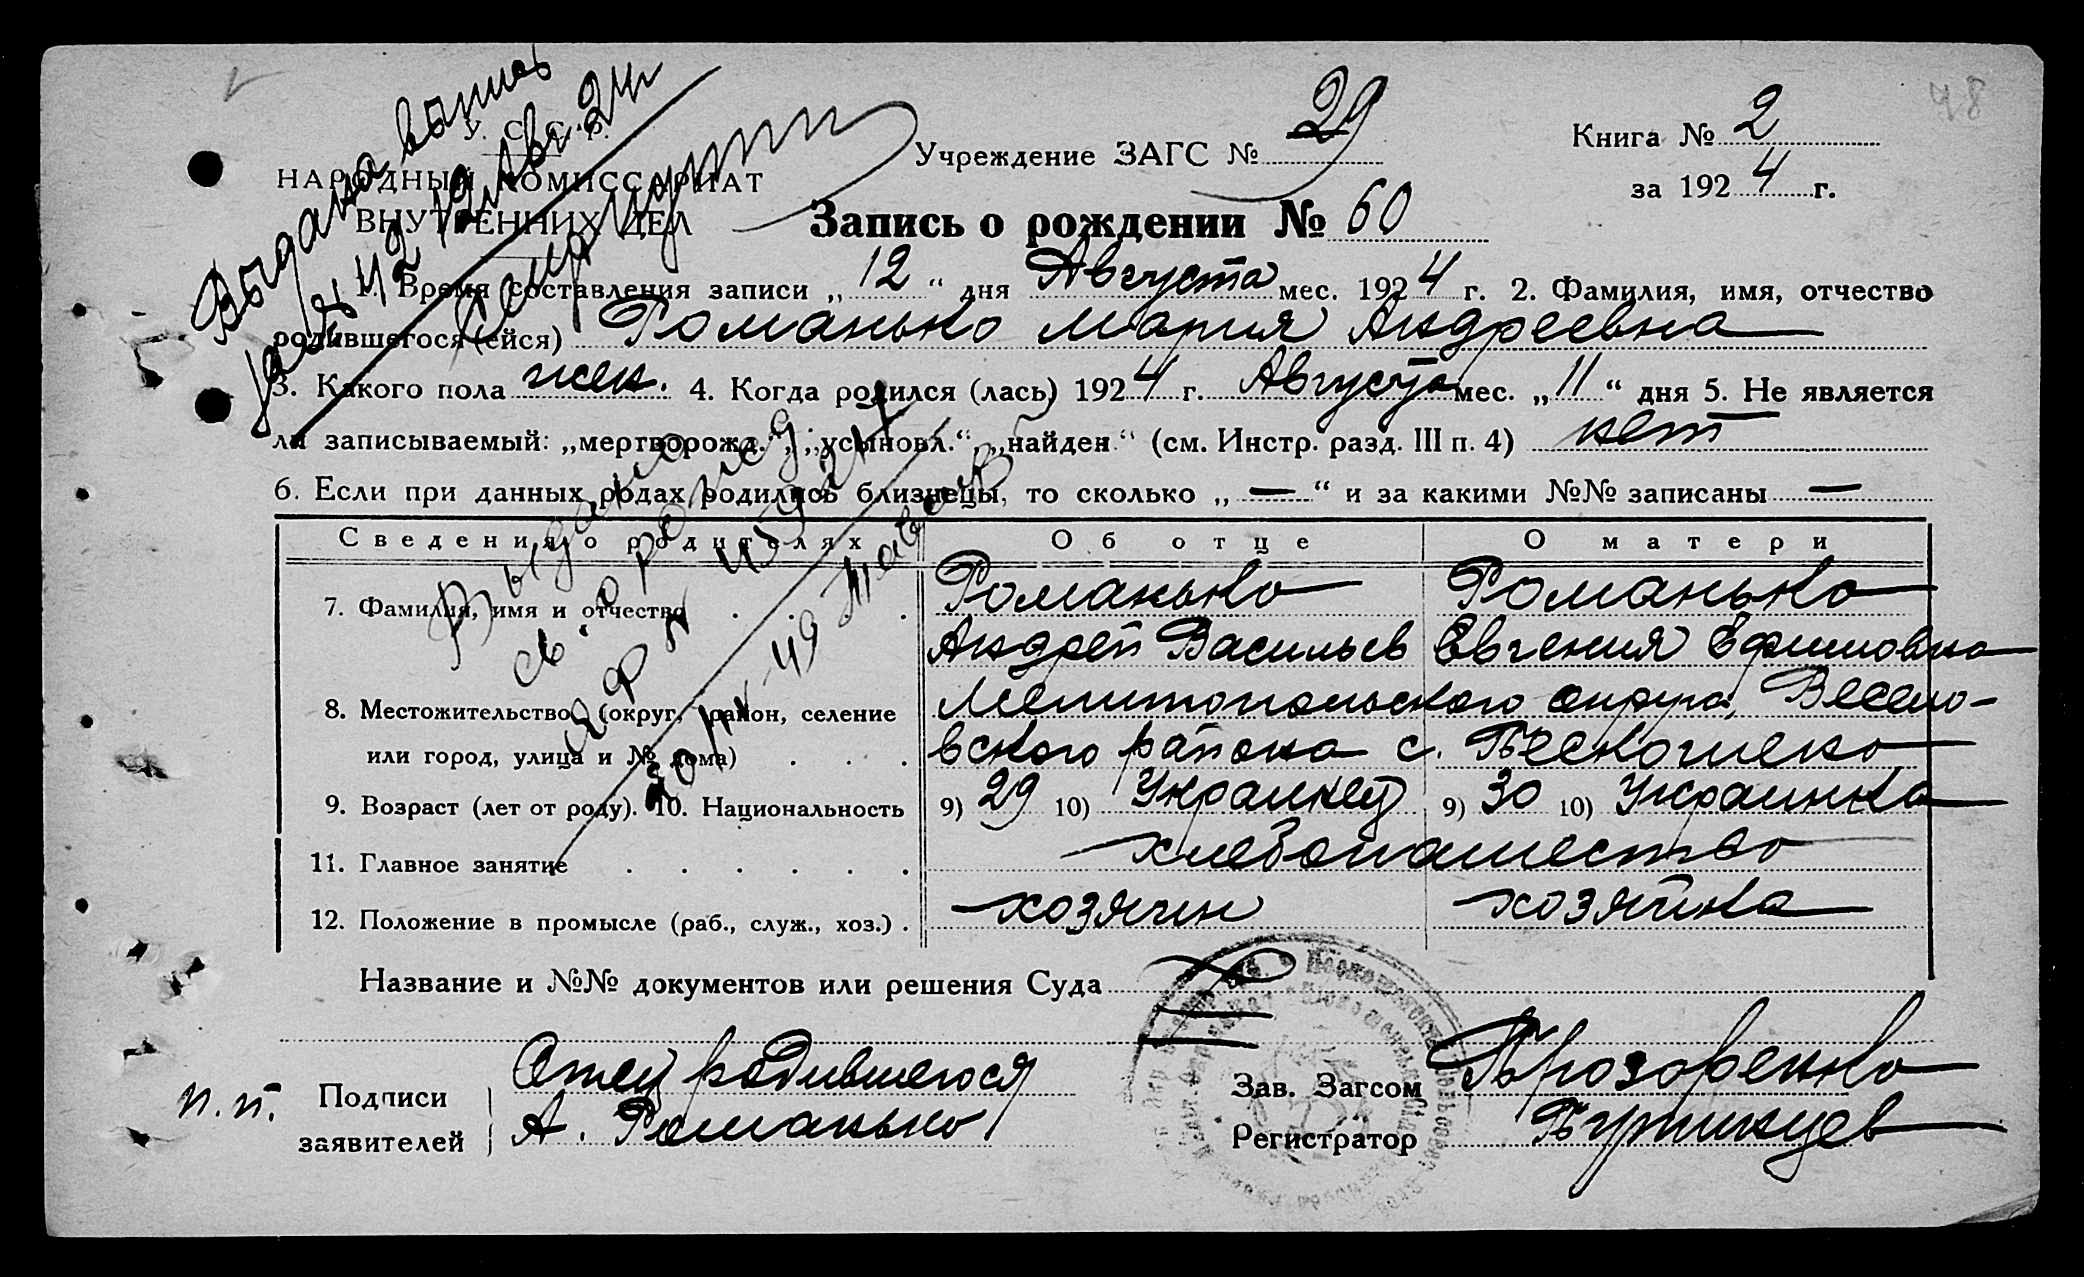 48
У. С. С. Р.
НАРОДНЫЙ КОМИССАРИАТ
ВНУТРЕННИХ ДЕЛ
Учреждение ЗАГС № 29
Книга № 2
за 1924 г.
Запись о рождении № 60
Выдана выпись
за № 42 12 Авг. 24 г.
1. Время составления записи „12“ дня Августа мес. 1924 г. 2. Фамилия, имя, отчество
родившегося (ейся) Романько Мария Андреевна
3. Какого пола жен. 4. Когда родился (лась) 1924 г. Августа мес. „11“ дня 5. Не является
ли записываемый: „мертворожд.“, „усыновл.“, „найден.“ (см. Инстр. разд. III п. 4) нет
6. Если при данных родах родились близнецы, то сколько „—“ и за какими №№ записаны —
Выдано
св. о рожд.
Сведения о родителях Об отце О матери
7. Фамилия, имя и отчество Романько Романько
Андрей Васильев Евгения Ефимовна
8. Местожительство (округ, район, селение Мелитопольского округа, Весело-
или город, улица и № дома) вского района с.
9. Возраст (лет от роду). 10. Национальность 9) 29 10) Украинец 9) 30 10) Украинка
11. Главное занятие хлебопашество
12. Положение в промысле (раб., служ., хоз.) хозяин хозяйка
Название и №№ документов или решения Суда
п.п. Подписи
заявителей
Отец родившегося
А. Романько
Зав. Загсом
Регистратор